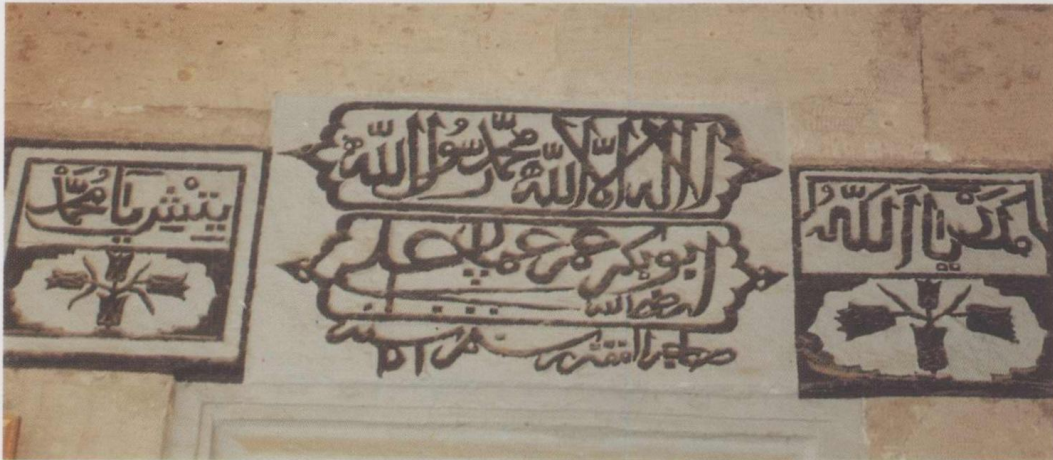 مدد يا الله
لا اله الا الله محمد رسول الله
ابو بكر عمر عثمان علي
رضى الله
يتيش يا محمد